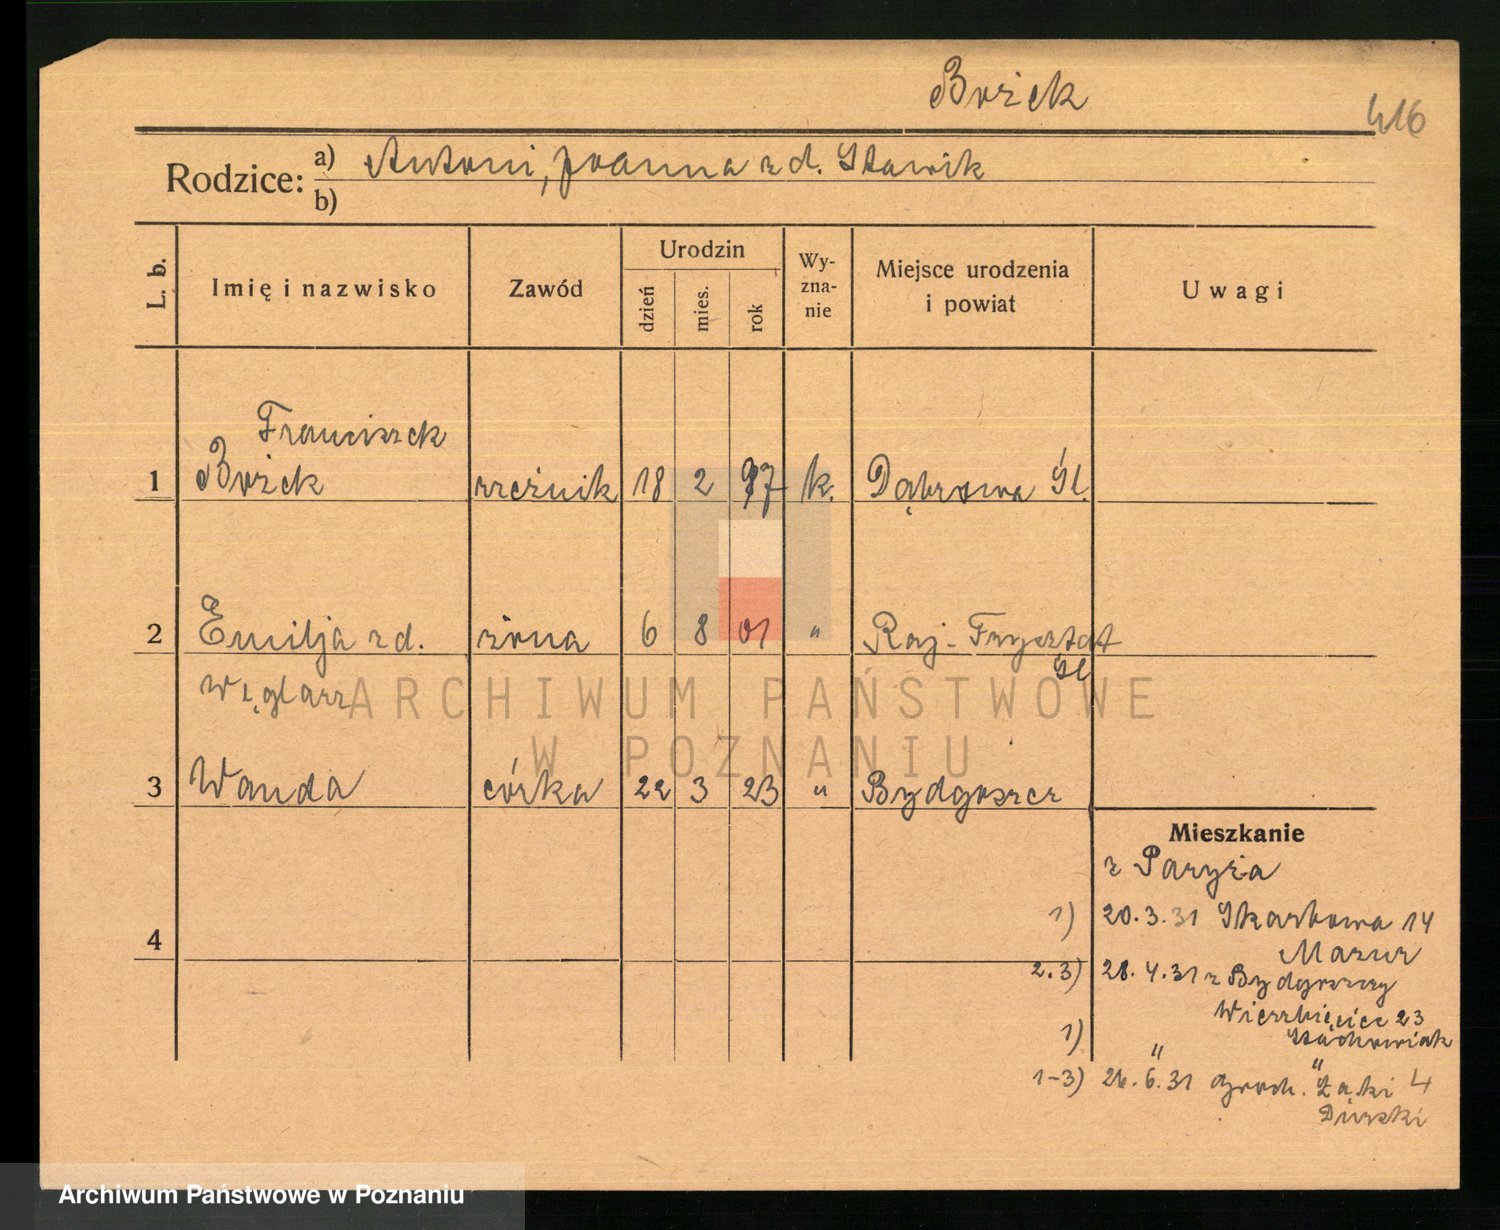 Bożek
416
Rodzice: a) Antoni, Joanna z d. Stawik
b)
L. b. Imię i nazwisko Zawód Urodzin dzień mies. rok Wy-zna-nie Miejsce urodzenia i powiat Uwagi
Franciszek
1 Bożek rzeźnik 18 2 97 k. Dąbrowa Śl.
2 Emilja z d. żona 6 8 01 " Raj-Frysztat
Węglarz Śl
ARCHIWUM PAŃSTWOWE
W POZNANIU
3 Wanda córka 22 3 23 " Bydgoszcz
Mieszkanie
z Paryża
1) 20.3.31 Skarbowa 14
4
Mazur
2.3) 28.4.31 z Bydgoszczy
Wierzbięcice 23
Stachowiak
1) " "
1-3) 26.6.31 Groch. Łąki 4
Durski
Archiwum Państwowe w Poznaniu